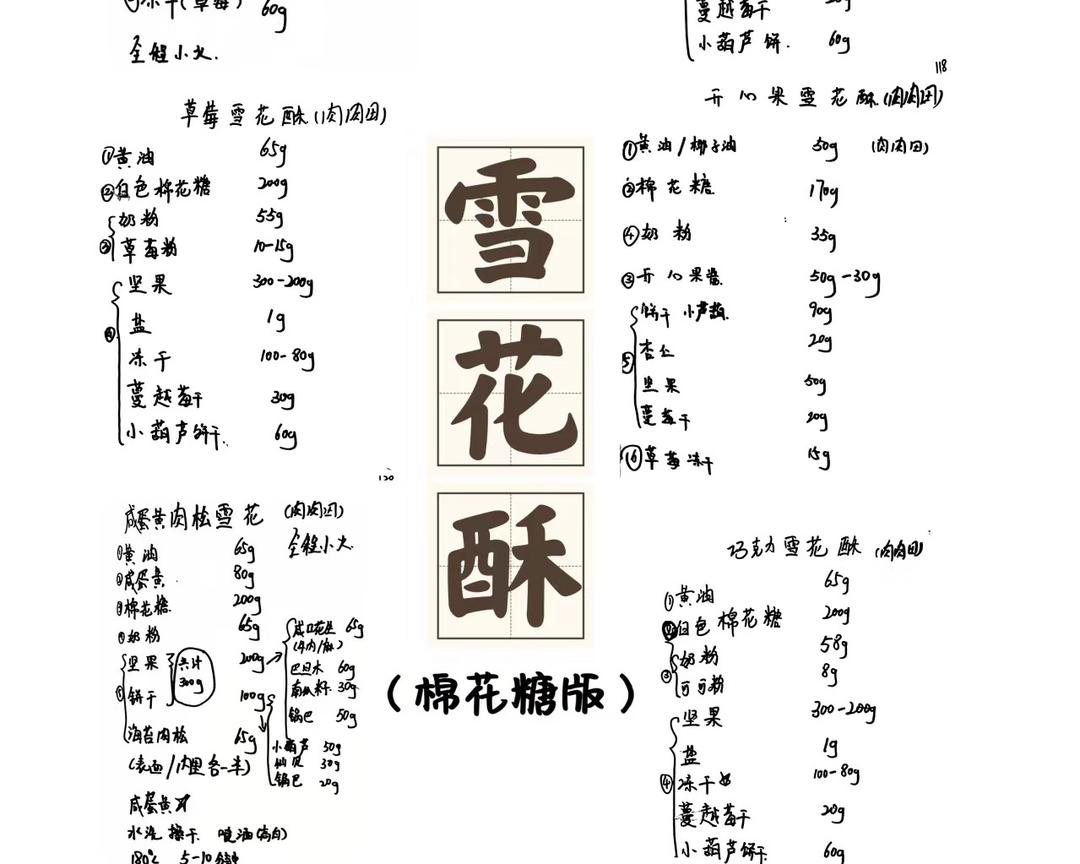 冻干(草莓) 60g
全程小火.
蔓越莓干
小葫芦饼. 60g
118
草莓雪花酥(肉肉田)
①黄油 65g
②白色棉花糖 200g
③奶粉 55g
草莓粉 10-15g
④坚果 300-200g
盐 1g
冻干 100-80g
蔓越莓干 30g
小葫芦饼干. 60g
120
开心果雪花酥(肉肉田)
①黄油/椰子油 50g (肉肉田)
②棉花糖 170g
④奶粉 35g
③开心果酱 50g-30g
⑤饼干 小芦葫. 90g
杏仁 20g
坚果 50g
蔓莓干 20g
⑥草莓冻干 15g
雪
花
酥
(棉花糖版)
咸蛋黄肉松雪花 (肉肉田)
全程小火.
①黄油 65g
②咸蛋黄. 80g
③棉花糖. 200g
④奶粉 65g
⑤坚果 200g
共计
300g
饼干 100g
海苔肉松 65g
(表面/肉里各一半)
咸口花生 65g
巴旦木 60g
南瓜籽 30g
锅巴 50g
小葫芦 50g
仙贝 30g
锅巴 20g
咸蛋黄
水洗 擦干. 喷油(高白)
180° 5-10分钟
巧克力雪花酥 (肉肉田)
①黄油 65g
②白色棉花糖 200g
③奶粉 58g
可可粉 8g
④坚果 300-200g
盐 1g
冻干 100-80g
蔓越莓干 20g
小葫芦饼干. 60g